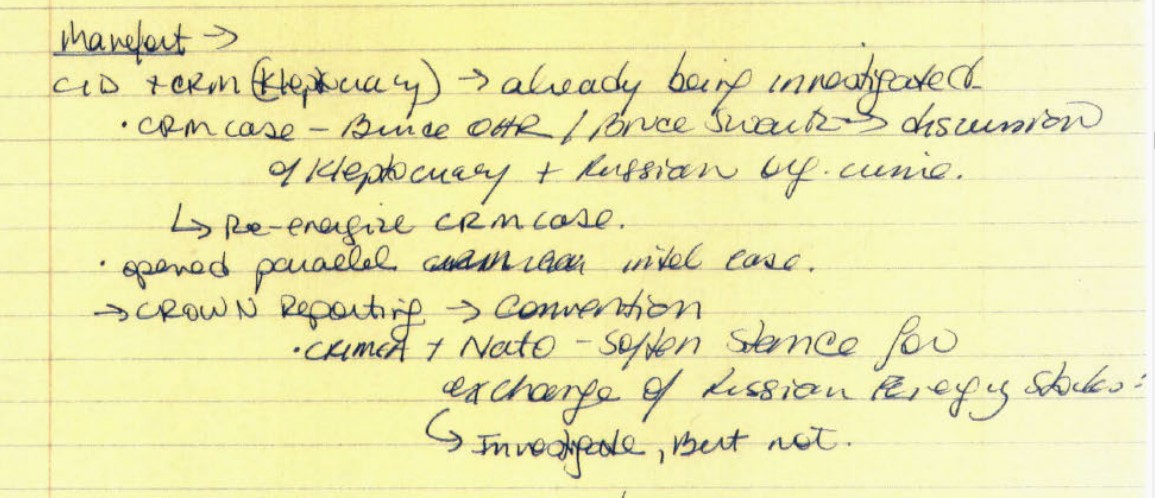 Manafort →
CID + CRM (Kleptocracy) → already being investigated
• CRM case - Bruce OHR / Bruce Swartz → discussion
of Kleptocracy + Russian org. crime.
↳ Re-energize CRM case.
• opened parallel intel case.
→ CROWN Reporting → Convention
• CRIMEA + Nato - Soften Stance for
exchange of Russian Energy Stocks
↳ Investigate, But not.